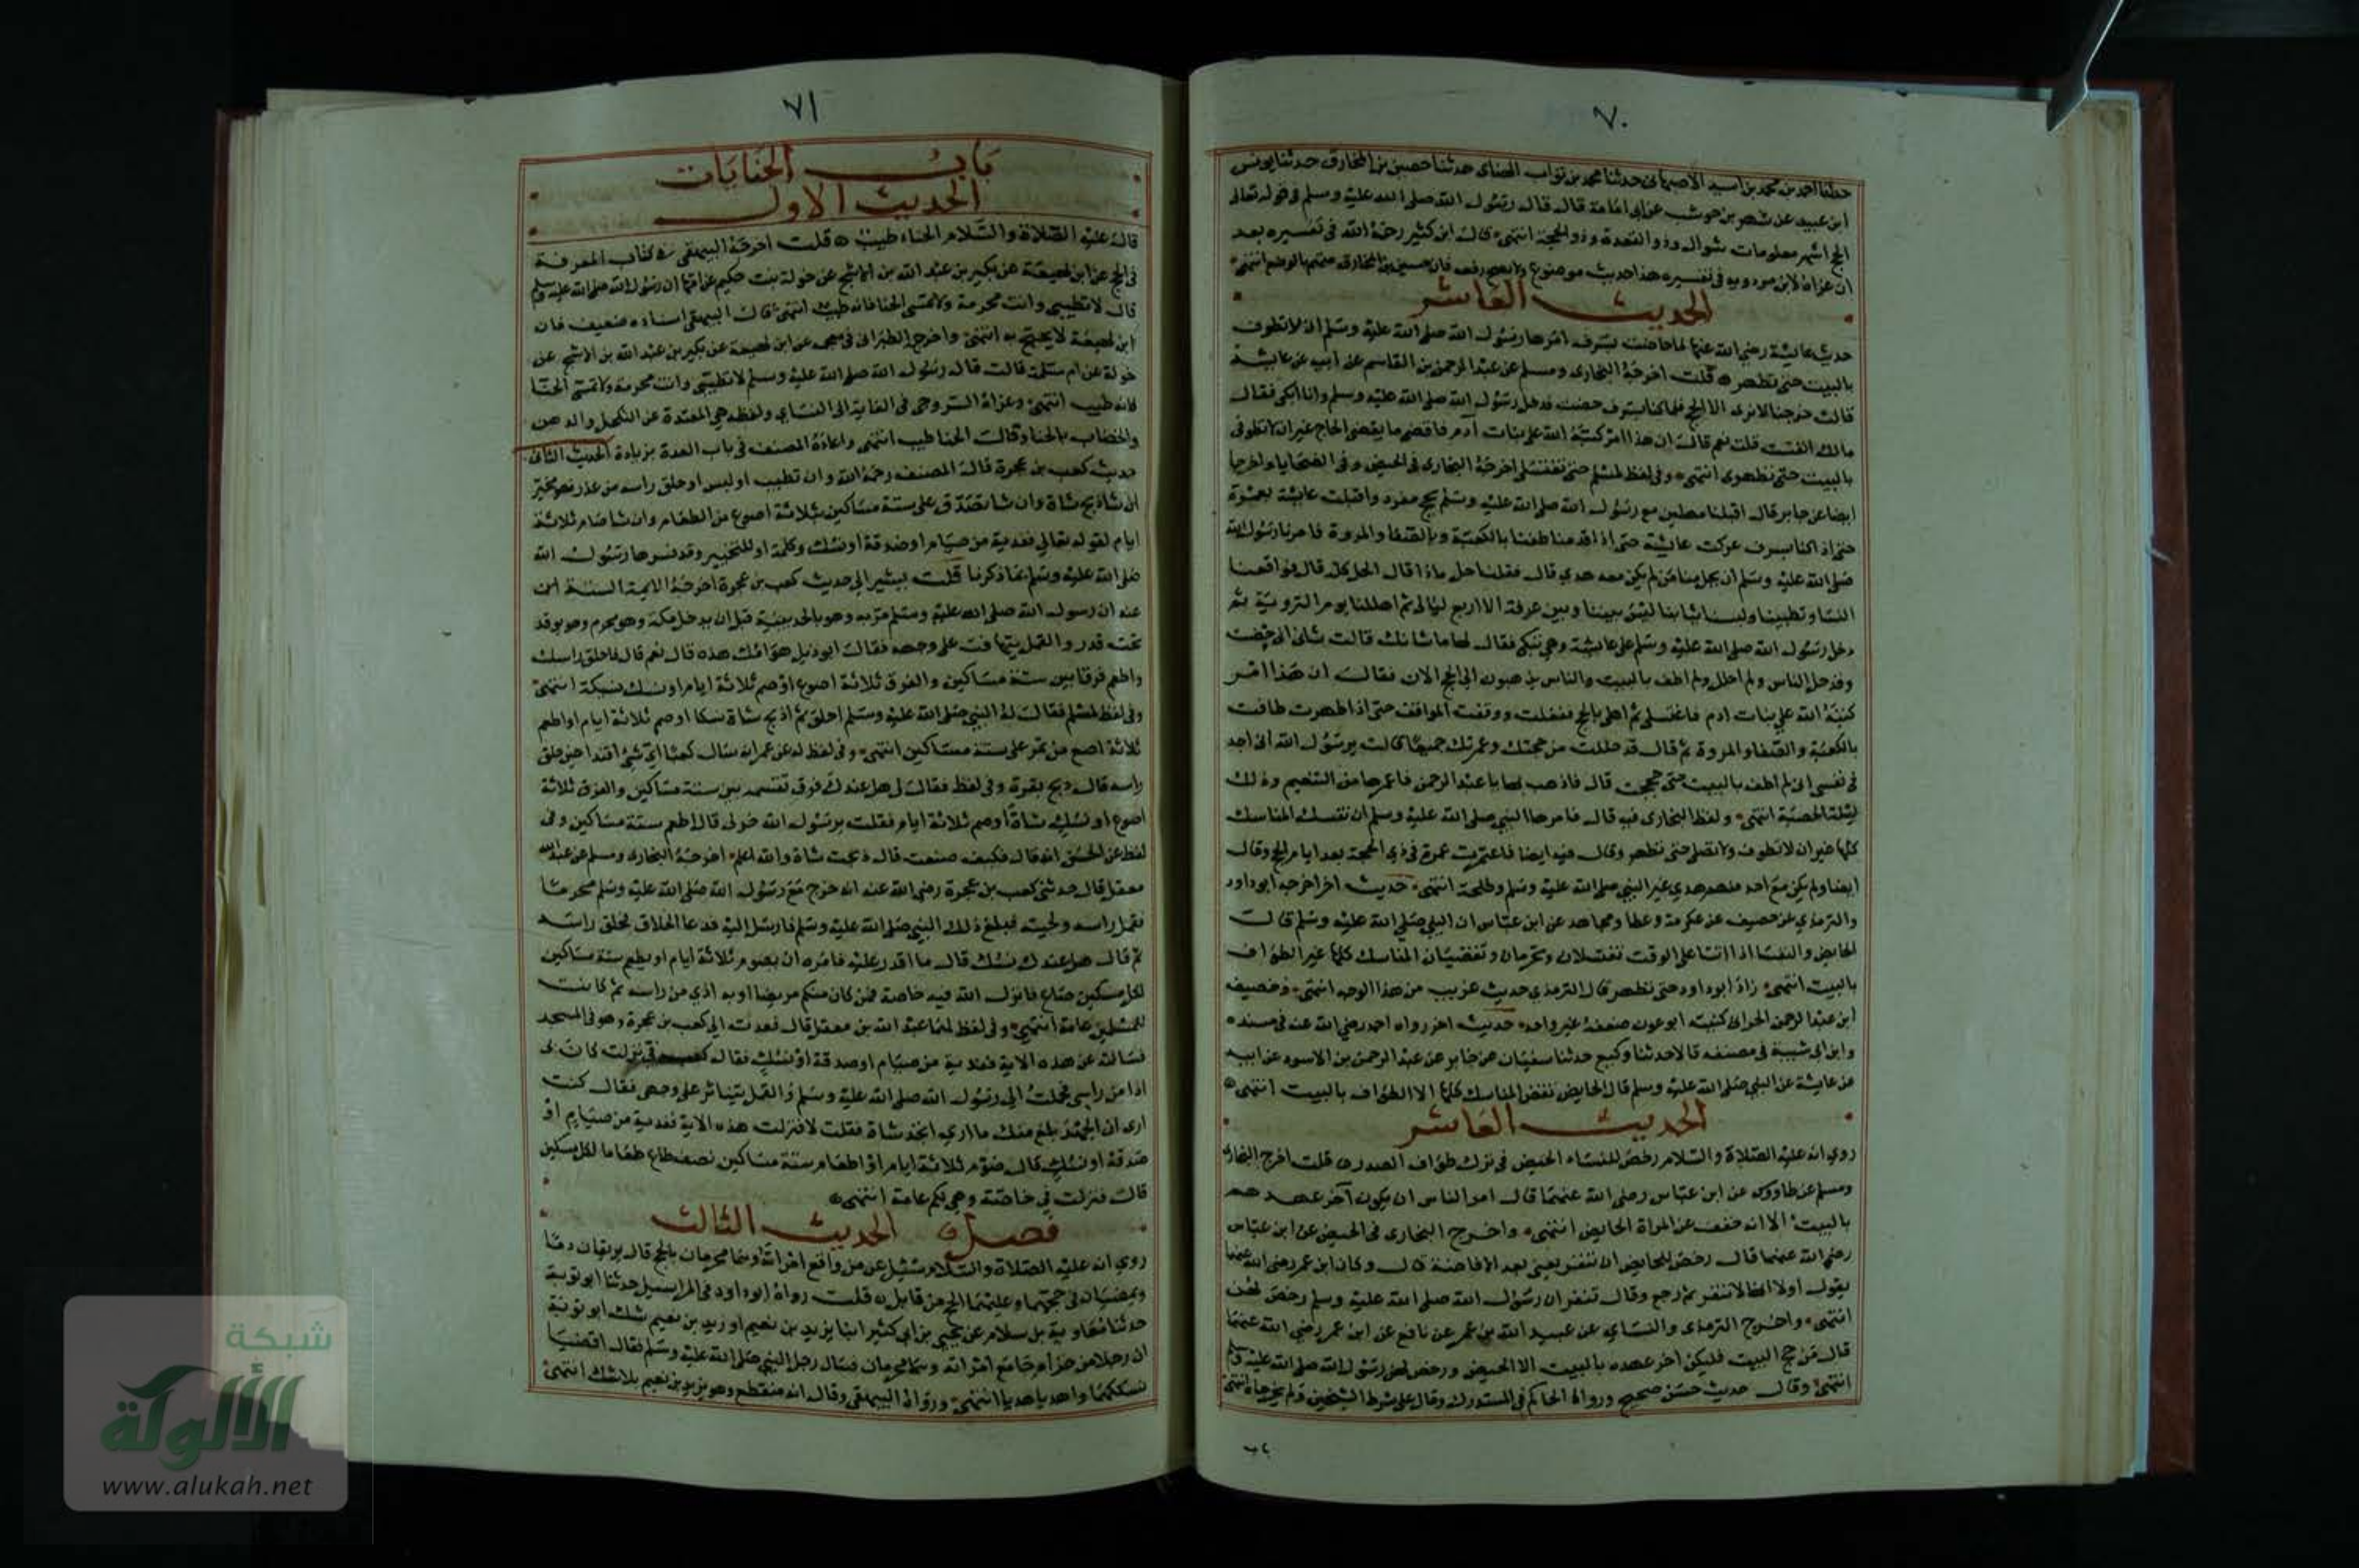 ٧٠
حدثنا احمد بن محمد بن اسيد الاصبهانى حدثنا محمد بن ثواب الهنائى حدثنا حصين بن المخارق حدثنا يونس
ابن عبيد عن شهر بن حوشب عن ابى امامة قال قال رسول الله صلى الله عليه وسلم فى قوله تعالى
الحج اشهر معلومات شوال وذو القعدة وذو الحجة انتهى قال ابن كثير رحمه الله فى تفسيره بعد
ان عزاه لابن مردويه فى تفسيره هذا حديث موضوع ولا يصح رفعه فان حصين بن المخارق متهم بالوضع انتهى
الحديث العاشر
حديث عائشة رضى الله عنها لما حاضت بسرف امرها رسول الله صلى الله عليه وسلم ان لا تطوف
بالبيت حتى تطهر قلت اخرجه البخارى ومسلم عن عبد الرحمن بن القاسم عن ابيه عن عايشة
قالت خرجنا لا نرى الا الحج فلما كنا بسرف حضت فدخل رسول الله صلى الله عليه وسلم وانا ابكى فقال
مالك انفست قلت نعم قال ان هذا امر كتبه الله على بنات آدم فاقضى ما يقضى الحاج غير ان لا تطوفى
بالبيت حتى تطهرى انتهى وفى لفظ لمسلم حتى تغتسلى اخرجه البخارى فى الحيض وفى الضحايا واخرجا
ايضا عن جابر قال اقبلنا مهلين مع رسول الله صلى الله عليه وسلم بحج مفرد واقبلت عائشة بعمرة
حتى اذا كنا بسرف عركت عائشة حتى اذا قدمنا طفنا بالكعبة وبالصفا والمروة فامرنا رسول الله
صلى الله عليه وسلم ان يحل منا من لم يكن معه هدي قال فقلنا حل ماذا قال الحل كله قال فواقعنا
النسا وتطيبنا ولبسنا ثيابنا ليس بيننا وبين عرفة الا اربع ليالى ثم اهللنا يوم التروية ثم
دخل رسول الله صلى الله عليه وسلم على عايشة وهى تبكى فقال لها ما شانك قالت شانى انى حضت
وقد حل الناس ولم احلل ولم اطف بالبيت والناس يذهبون الى الحج الان فقال ان هذا امر
كتبه الله على بنات ادم فاغتسلى ثم اهلى بالحج ففعلت ووقفت المواقف حتى اذا طهرت طافت
بالكعبة والصفا والمروة ثم قال قد حللت من حجتك وعمرتك جميعا قالت يرسول الله انى اجد
فى نفسى انى لم اطف بالبيت حتى حججت قال فاذهب بها يا عبد الرحمن فاعمرها من التنعيم وذلك
ليلة الحصبة انتهى ولفظ البخارى فيه قال فامرها النبى صلى الله عليه وسلم ان تنسك المناسك
كلها غير ان لا تطوف ولا تصلى حتى تطهر وقال فيه ايضا فاعتمرت عمرة فى ذى الحجة بعد ايام الحج وقال
ايضا ولم يكن مع احد منهم هدي غير النبى صلى الله عليه وسلم وطلحة انتهى حديث اخر اخرجه ابو داود
والترمذي عن خصيف عن عكرمة وعطا ومجاهد عن ابن عباس ان النبى صلى الله عليه وسلم قال
الحايض والنفسا اذا اتتا على الوقت تغتسلان وتحرمان وتقضيان المناسك كلها غير الطواف
بالبيت انتهى زاد ابو داود حتى تطهر قال الترمذي حديث غريب من هذا الوجه انتهى وخصيف
ابن عبد الرحمن الحرانى كنيته ابو عون ضعفه غير واحد حديث اخر رواه احمد رضي الله عنه فى مسنده
وابن ابى شيبة فى مصنفه قالا حدثنا وكيع حدثنا سفيان عن جابر عن عبد الرحمن بن الاسود عن ابيه
عن عايشة عن النبى صلى الله عليه وسلم قال الحايض تقضى المناسك كلها الا الطواف بالبيت انتهى
الحديث العاشر
روي انه عليه الصلاة والسلام رخص للنساء الحيض فى ترك طواف الصدر قلت اخرج البخارى
ومسلم عن طاووس عن ابن عباس رضى الله عنهما قال امر الناس ان يكون آخر عهدهم
بالبيت الا انه خفف عن المراة الحايض انتهى واخرج البخارى فى الحيض عن ابن عباس
رضى الله عنهما قال رخص للحايض ان تنفر يعنى بعد الافاضة قال وكان ابن عمر رضى الله عنهما
يقول اولا انها لا تنفر ثم رجع وقال تنفر ان رسول الله صلى الله عليه وسلم رخص لهن
انتهى واخرج الترمذى والنسائي عن عبيد الله بن عمر عن نافع عن ابن عمر رضى الله عنهما
قال من حج البيت فليكن اخر عهده بالبيت الا الحيض ورخص لهن رسول الله صلى الله عليه وسلم
انتهى وقال حديث حسن صحيح ورواه الحاكم فى المستدرك وقال على شرط الشيخين ولم يخرجاه انتهى
٧١
باب الجنايات
الحديث الاول
قال عليه الصلاة والسلام الحناء طيب قلت اخرجه البيهقى فى كتاب المعرفة
فى الحج عن ابن لهيعة عن بكير بن عبد الله بن الاشج عن خولة بنت حكيم عن امها ان رسول الله صلى الله عليه وسلم
قال لا تطيبى وانت محرمة ولا تمسى الحنا فانه طيب انتهى قال البيهقى اسناده ضعيف فان
ابن لهيعة لا يحتج به انتهى واخرج الطبرانى فى معجمه عن ابن لهيعة عن بكير بن عبد الله بن الاشج عن
خولة عن ام سلمة قالت قال رسول الله صلى الله عليه وسلم لا تطيبى وانت محرمة ولا تمسى الحنا
فانه طيب انتهى وعزاه السروجى فى الغاية الى النساي ولفظه نهى المعتدة عن التكحل والدهن
والخضاب بالحنا وقال الحنا طيب انتهى واعاده المصنف فى باب العدة بزيادة الحديث الثانى
حديث كعب بن عجرة قال المصنف رحمه الله وان تطيب او لبس او حلق راسه من عذر فهو مخير
ان شا ذبح شاة وان شا تصدق على ستة مساكين بثلاثة اصوع من الطعام وان شا صام ثلاثة
ايام لقوله تعالى ففدية من صيام او صدقة او نسك وكلمة او للتخيير وقد فسرها رسول الله
صلى الله عليه وسلم بما ذكرنا قلت يشير الى حديث كعب بن عجرة اخرجه الايمة الستة
عنه ان رسول الله صلى الله عليه وسلم مر به وهو بالحديبية قبل ان يدخل مكة وهو محرم وهو يوقد
تحت قدر والقمل يتهافت على وجهه فقال ايوذيك هوامك هذه قال نعم قال فاحلق راسك
واطعم فرقا بين ستة مساكين والفرق ثلاثة اصوع او صم ثلاثة ايام او نسك نسيكة انتهى
وفى لفظ لمسلم فقال له النبى صلى الله عليه وسلم احلق ثم اذبح شاة نسكا او صم ثلاثة ايام او اطعم
ثلاثة اصع من تمر على ستة مساكين انتهى وفى لفظ له عن عمر انه سال كعبا اى شئ افتدا حين حلق
راسه قال ذبح بقرة وفى لفظ فقال لى هل عندك فرق تقسمه بين ستة مساكين والفرق ثلاثة
اصوع او نسك شاة او صم ثلاثة ايام فقلت يرسول الله خرلى قال اطعم ستة مساكين وفى
لفظ عن الحسن انه قال فكيف صنعت قال ذبحت شاة والله اعلم اخرجه البخارى ومسلم عن عبد الله
معقل قال حدثنى كعب بن عجرة رضى الله عنه انه خرج مع رسول الله صلى الله عليه وسلم محرما
فقمل راسه ولحيته فبلغ ذلك النبى صلى الله عليه وسلم فارسل اليه فدعا الحلاق فحلق راسه
ثم قال هل عندك نسك قال ما اقدر عليه فامره ان يصوم ثلاثة ايام او يطعم ستة مساكين
لكل مسكين صاع فانزل الله فيه خاصة فمن كان منكم مريضا او به اذي من راسه ثم كانت
للمسلمين عامة انتهى وفى لفظ لهما عبد الله بن معقل قال قعدت الى كعب بن عجرة وهو فى المسجد
فسالته عن هذه الاية ففدية من صيام او صدقة او نسك فقال كعب فى نزلت كان بى
اذا من راسى فحملت الى رسول الله صلى الله عليه وسلم والقمل يتناثر على وجهى فقال كنت
ارى ان الجهد بلغ منك ما ارى اتجد شاة فقلت لا فنزلت هذه الاية ففدية من صيام او
صدقة او نسك قال صوم ثلاثة ايام او اطعام ستة مساكين نصف صاع طعاما لكل مسكين
قال فنزلت فى خاصة وهى لكم عامة انتهى
فصل الحديث الثالث
روي انه عليه الصلاة والسلام سئيل عن من واقع امراته وهما محرمان بالحج قال يريقان دما
ويمضيان فى حجتهما وعليهما الحج من قابل قلت رواه ابو داود فى المراسيل حدثنا ابو توبة
حدثنا معاوية بن سلام عن يحيى بن ابى كثير انبا يزيد بن نعيم او زيد بن نعيم شك ابو توبة
ان رجلا من جذام جامع امراته وهما محرمان فسال رجل النبى صلى الله عليه وسلم فقال اقضيا
نسككما واهديا هديا انتهى ورواه البيهقى وقال انه منقطع وهو يزيد بن نعيم بلا شك انتهى
شبكة
الألوكة
www.alukah.net